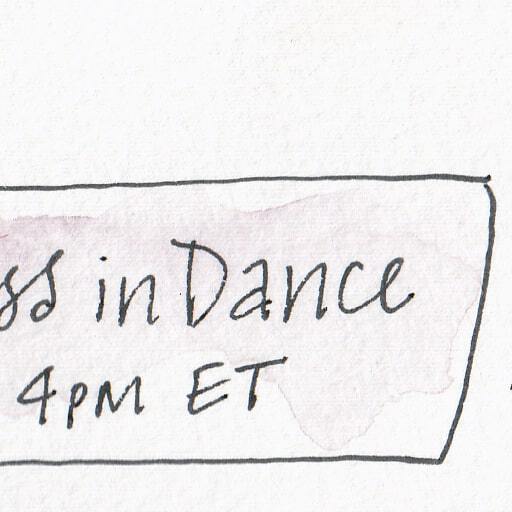 in Dance
4PM ET